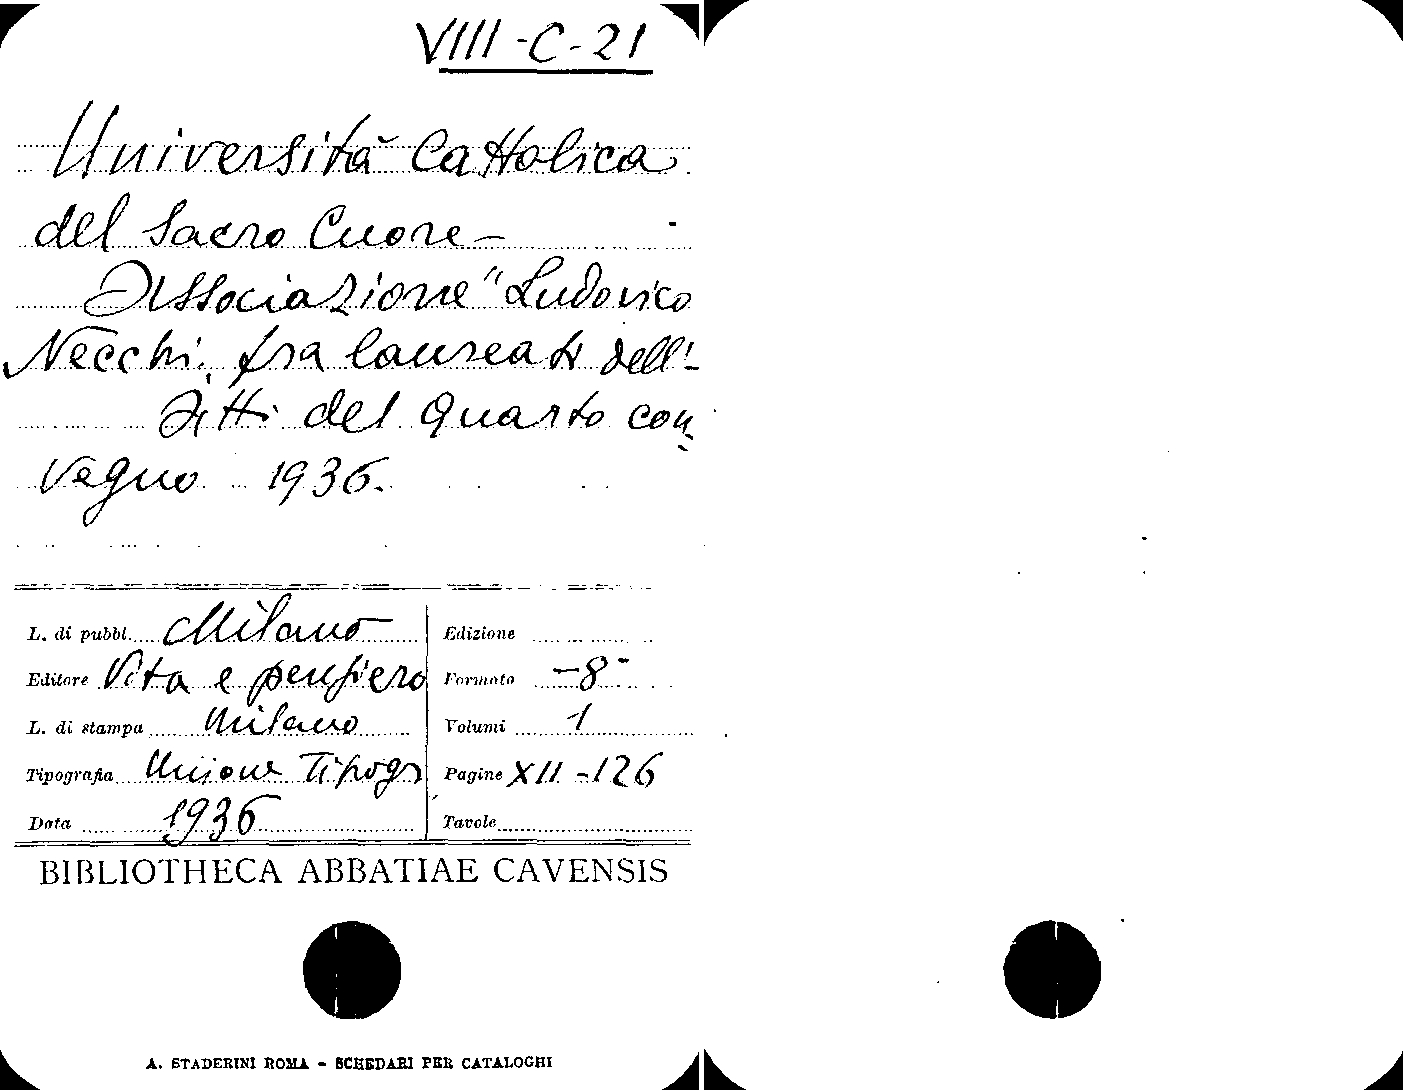 VIII-C-21
Università Cattolica
del Sacro Cuore –
Associazione "Ludovico
Necchi, fra laureati dell'-
Atti del quarto con
vegno 1936.
L. di pubbl. Milano
Editore Vita e pensiero
L. di stampa Milano
Tipografia Unione Tipogr
Data 1936
Edizione
Formato -8-
Volumi 1
Pagine XII-126
Tavole
BIBLIOTHECA ABBATIAE CAVENSIS
A. STADERINI ROMA - SCHEDARI PER CATALOGHI